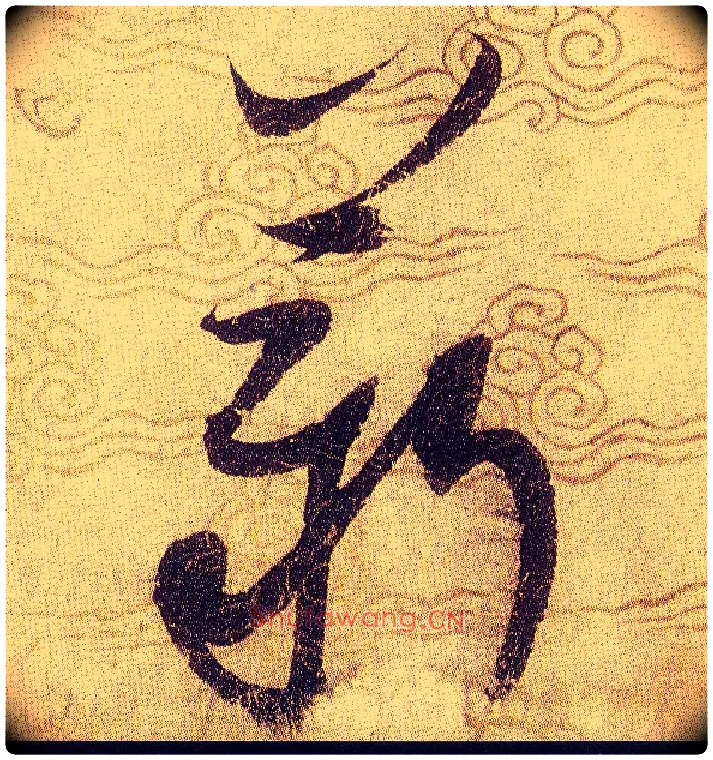 薪
shufawang.CN